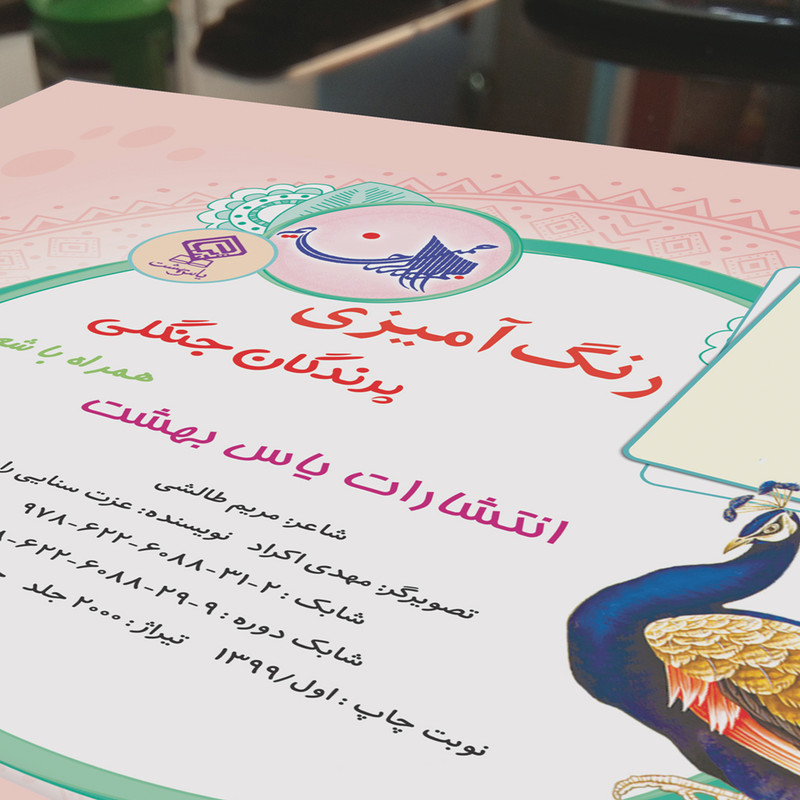 یاس بهشت
رنگ آمیزی
پرندگان جنگلی
همراه با شعر
انتشارات یاس بهشت
شاعر: مریم طالشی
تصویرگر: مهدی اکراد نویسنده: عزت سنایی
شابک : ۲-۳۱-۶۰۸۸-۶۲۲-۹۷۸
شابک دوره : ۹-۲۹-۶۰۸۸-۶۲۲-
نوبت چاپ : اول/۱۳۹۹ تیراژ: ۲۰۰۰ جلد